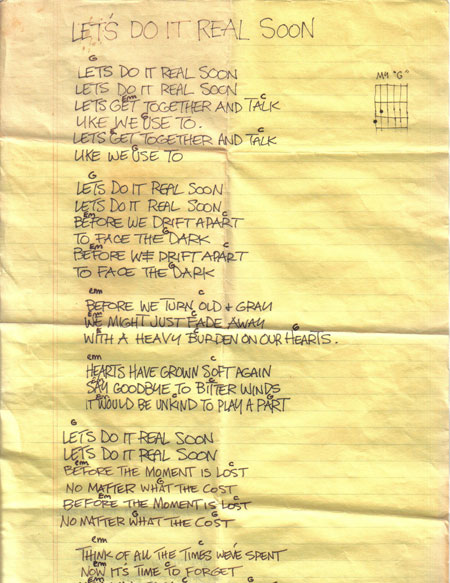 LET'S DO IT REAL SOON
G
LETS DO IT REAL SOON
MY "G"
LETS DO IT REAL SOON
Em C
LETS GET TOGETHER AND TALK
G
LIKE WE USE TO.
C
LETS GET TOGETHER AND TALK
G
LIKE WE USE TO
G
LETS DO IT REAL SOON
LETS DO IT REAL SOON
Em C
BEFORE WE DRIFT APART
G
TO FACE THE DARK
Em C
BEFORE WE DRIFT APART
G
TO FACE THE DARK
em C
BEFORE WE TURN OLD & GRAY
em C
WE MIGHT JUST FADE AWAY
C G
WITH A HEAVY BURDEN ON OUR HEARTS.
em C
HEARTS HAVE GROWN SOFT AGAIN
em C
SAY GOODBYE TO BITTER WINDS
C G
IT WOULD BE UNKIND TO PLAY A PART
G
LETS DO IT REAL SOON
LETS DO IT REAL SOON
em C
BEFORE THE MOMENT IS LOST
G
NO MATTER WHAT THE COST
Em C
BEFORE THE MOMENT IS LOST
G G
NO MATTER WHAT THE COST
em C
THINK OF ALL THE TIMES WE'VE SPENT
em C
NOW IT'S TIME TO FORGET